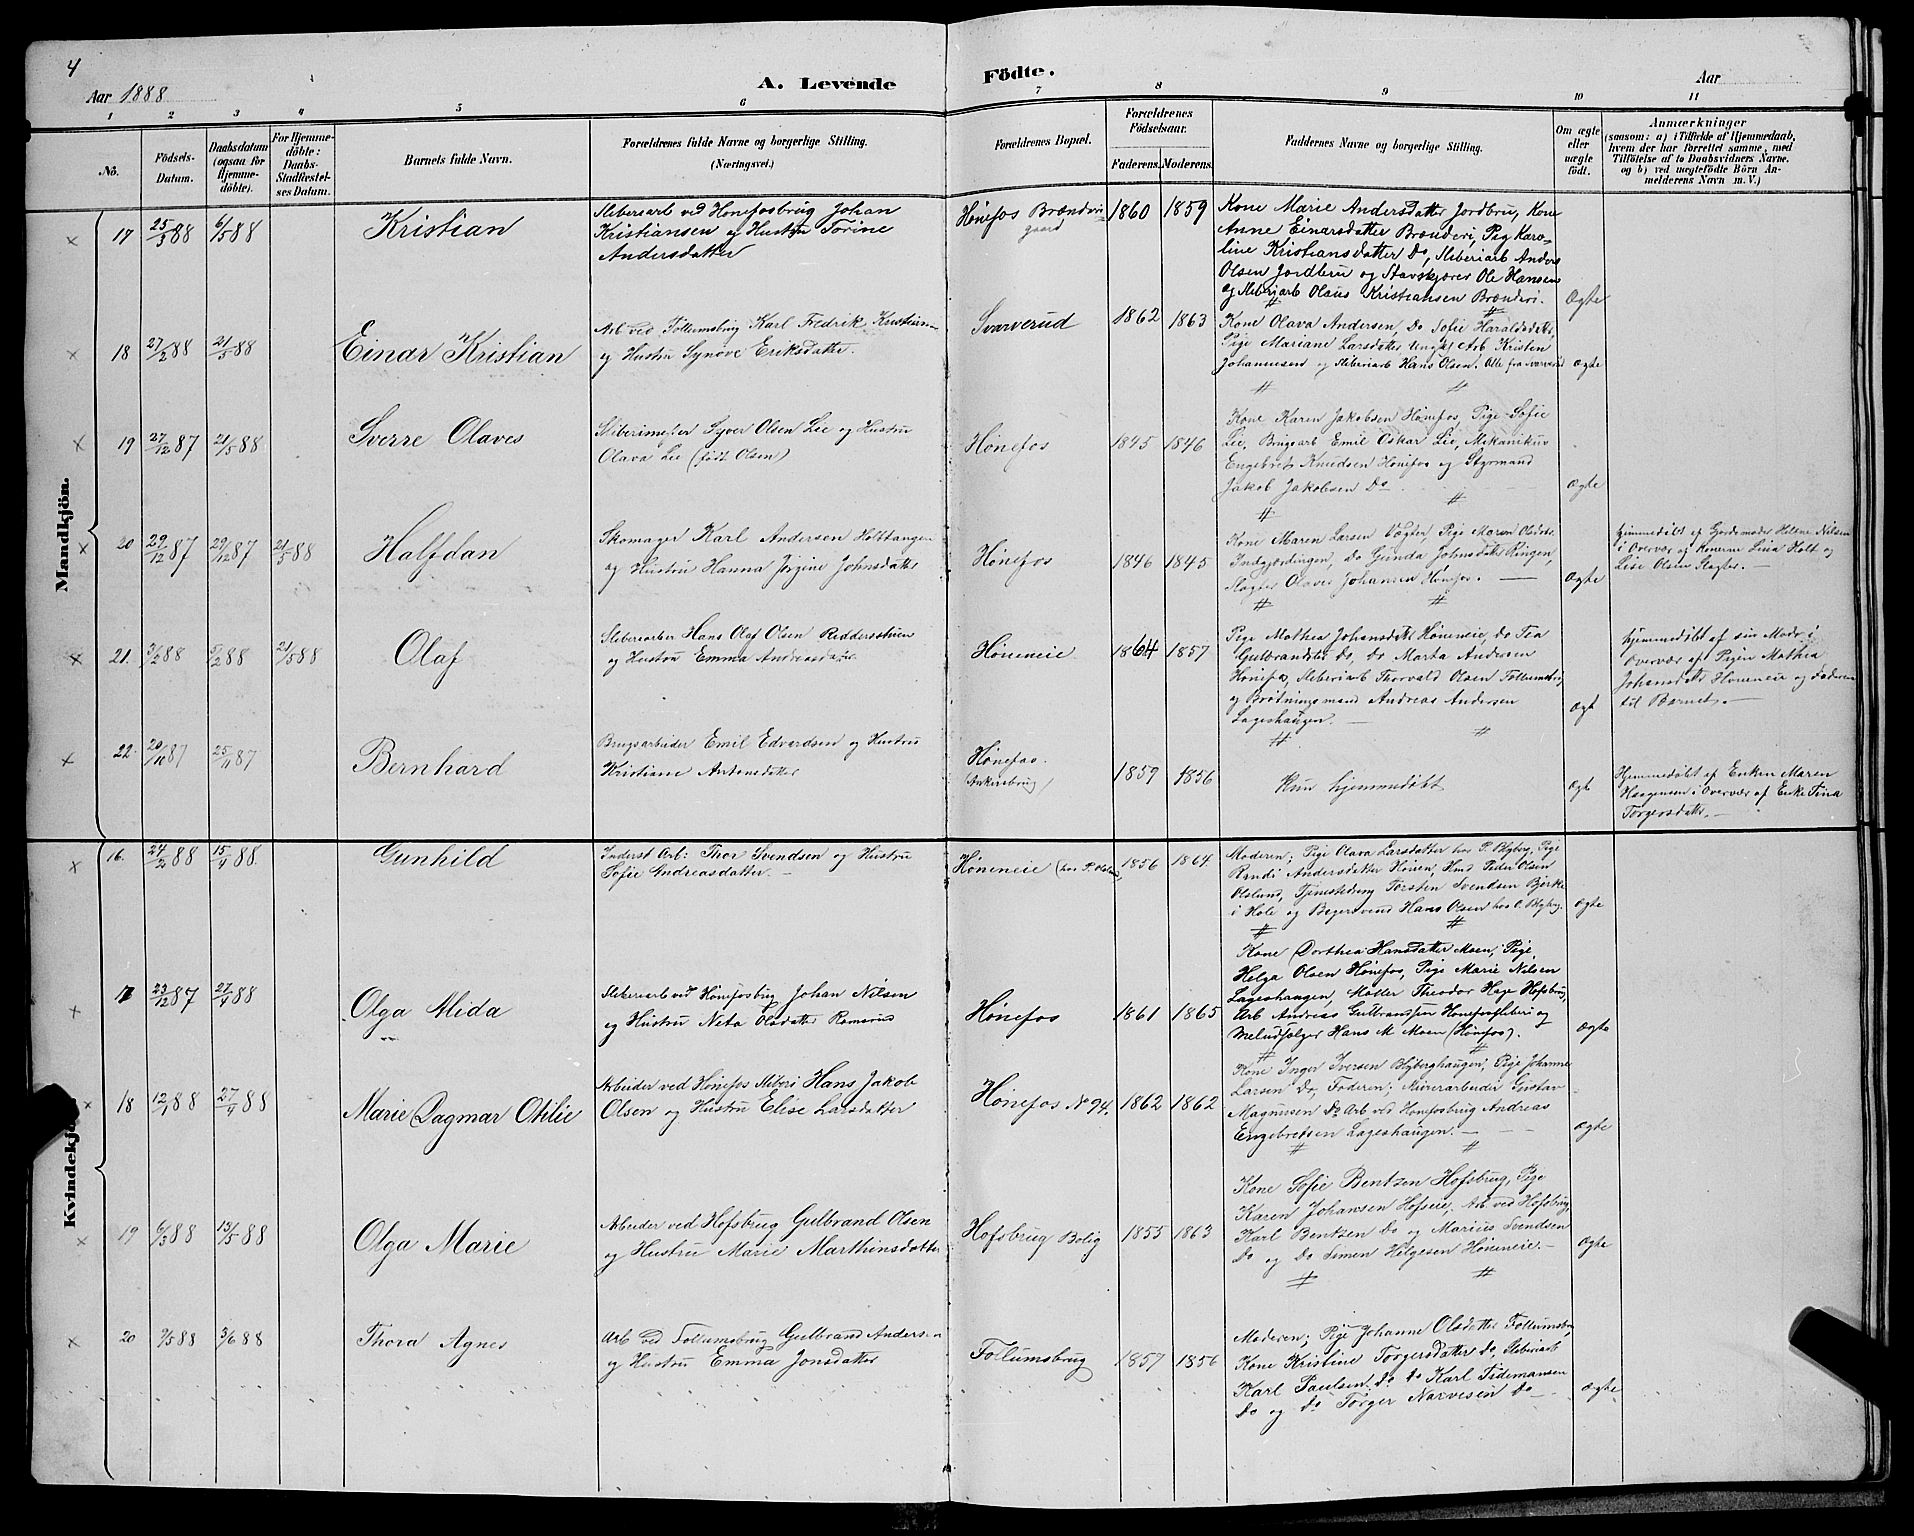 4
Aar 1888
A. Levende
Födte.
Aar
1 2 3 4 5 6 7 8 9 10 11
No.
Födsels-
Datum.
Daabsdatum
(ogsaa for
Hjemme-
döbte).
For Hjemme-
döbte:
Daabs-
Stadfæstel-
ses Datum.
Barnets fulde Navn.
Forældrenes fulde Navne og borgerlige Stilling.
(Næringsvei.)
Forældrenes Bopæl.
Forældrenes
Födselsaar.
Faderens. Moderens.
Faddernes Navne og borgerlige Stilling.
Om ægte
eller
uægte
födt.
Anmærkninger
(saasom: a) i Tilfælde af Hjemmedaab,
hvem der har forrettet samme, med
Tilföielse af to Daabsvidners Navne.
og b) ved uægtefödte Börn An-
melderens Navn m. V.)
Mandkjön.
17 25/3 88 6/5 88
Kristian
Sliberiarb ved Hønefosbrug Johan
Kristiansen og Hustru Torine
Andersdatter
Hønefos Brænderi
gaard
1860 1859
Kone Marie Andersdatter Jordbru, Kone
Anne Einarsdatter Brænderi, Pig Karo-
line Kristiansdatter Do, Sliberiarb Anders
Olsen Jordbru og Stavskjærer Ole Hansen
og Sliberiarb Olaus Kristiansen Brænderi.
Ægte
18 27/2 88 21/5 88
Einar Kristian
Arb ved Follumsbrug Karl Fredrik Kristians-
og Hustru Synøve Eriksdatter.
Svarverud
1862 1863
Kone Olava Andersen, Do Sofie Haraldsdatter,
Pige Mariane Larsdatter Ungk Arb Kristin
Johannesen og Sliberiarb Hans Olsen. Alle fra Svarverud
Ægte
19 27/12 87 21/5 88
Sverre Olaves
Sliberimester Syver Olsen Lie og Hustru
Olava Lie (født Olsen)
Hønefos
1845 1846
Kone Karen Jakobsen Hønefos, Pige Sofie
Lie, Brugsarb Emil Oskar Lie, Mekanikus
Engebret Knudsen Hønefos og Styrmand
Jakob Jakobsen Do
Ægte
20 29/12 87 29/12 87 21/5 88
Halfdan
Skomager Karl Andersen Holttangen
og Hustru Hanna Jørgine Johnsdatter
Hønefos
1846 1845
Kone Maren Larsen Vægter Pige Maren Olsdatter
Indgjærdingen, Do Gunda Johnsdatter Ringen,
Slagter Olaves Johansen Hønefos.
Ægte
Hjemmedøbt af Gjordmoder Helene Nilsen
i Overvær af Konerne Lina Holt og
Lise Olsen Slagter.
21. 3/2 88 5/2 88 21/5 88
Olaf
Sliberiarber Hans Olaf Olsen Reddersstuen
og Hustru Emma Andreasdatter
Høneneie
1864 1857
Pige Mathea Johansdatter Høneneie, Do Tea
Gulbrandsdatter Do, Do Marta Andersen
Hønefos, Sliberiarb Thorvald Olsen Follumsbrug
og Brødningsmand Andreas Andersen
Lageshaugen.
Ægt
Hjemmedøbt af sin Moder i
Overvær af Pigen Mathea
Johansdatter Høneneie og Faderen
til Barnet.
22. 20/10 87 25/11 87
Bernhard
Brugsarbeider Emil Edvardsen og Hustru
Kristiane Antonsdatter
Hønefos.
(Ankersbrug)
1859 1856
Kun hjemmedøbt
Ægt
Hjemmedøbt af Enken Maren
Haagensen i Overvær af Enke Tina
Torgersdatter.
Kvindekjön
16. 24/2 88 15/4 88
Gunhild
Inderst Arb: Thor Svendsen og Hustru
Sofie Andreasdatter.
Høneneie (hos P. Olslund)
1856 1864
Moderen; Pige Olava Larsdatter hos P. Blyberg, Pige
Randi Andersdatter Hønen, Hmd Peder Olsen
Olslund, Tjenestedreng Torsten Svendsen Bjerke
i Hole og Bagersvend Hans Olsen hos O. Blyberg.
Ægte
17 23/12 87 27/4 88
Olga Alida
Sliberiarb ved Hønefosbrug Johan Nilsen
og Hustru Neta Olsdatter Ramsrud
Hønefos
1861 1865
Kone Dorthea Hansdatter Moen, Pige
Helga Olsen Hønefos, Pige Marie Nilsen
Lageshaugen, Møller Theodor Hage Hofsbrug,
Arb Andreas Gulbransen Hønefossliberi og
Meludsælger Hans M Moen (Hønefos).
Ægte
18 12/1 88 27/4 88
Marie Dagmar Otilie
Arbeider ved Hønefos Sliberi Hans Jakob
Olsen og Hustru Elise Larsdatter
Hønefos No 94.
1862 1862
Kone Inger Iversen Blyberghaugen, Pige Johanne
Larsen Do, Faderen; Murerarbeider Gustav
Magnusen Do Arb ved Hønefosbrug Andreas
Engebretsen Lageshaugen.
Ægte
19 6/3 88 13/5 88
Olga Marie
Arbeider ved Hofsbrug Gulbrand Olsen
og Hustru Marie Marthinsdatter
Hofsbrug Bolig
1855 1863
Kone Sofie Bentzen Hofsbrug, Pige
Karen Johansen Hofseie, Arb ved Hofsbrug
Karl Bentzen Do og Marius Svendsen
Do og Do Simen Helgesen Høneneie.
Ægte
20 9/5 88 3/6 88
Thora Agnes
Arb ved Follumsbrug Gulbrand Andersen
og Hustru Emma Jonsdatter
Follumsbrug
1857 1856
Moderen; Pige Johanne Olsdatter Follumsbrug
Kone Kristine Torgersdatter Do, Sliberiarb
Karl Paulsen Do Do Karl Tidemansen
Do og Do Torger Narvesen Do
Ægte